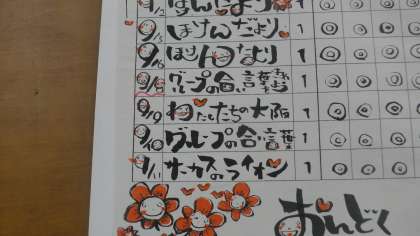 ほけんだより 1
9/5 ほけんだより 1
9/6 ほけんだより 1
グループの合言葉 1
9/9 わたしたちの大阪 1
9/10 グループの合言葉 1
9/11 サーカスのライオン 1
おんどく